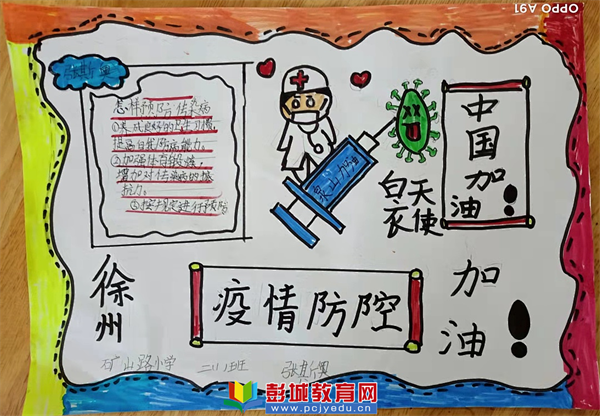 OPPO A91
怎样预防传染病
①养成良好的卫生习惯,
提高自我防病能力。
②加强体育锻炼,
增加对传染病的抵
抗力。
③按规定进行预防
泉山加油
白衣
天使
中国加油!
徐州
疫情防控
加油!
矿山路小学
二(1)班
彭城教育网
www.pcjyedu.cn